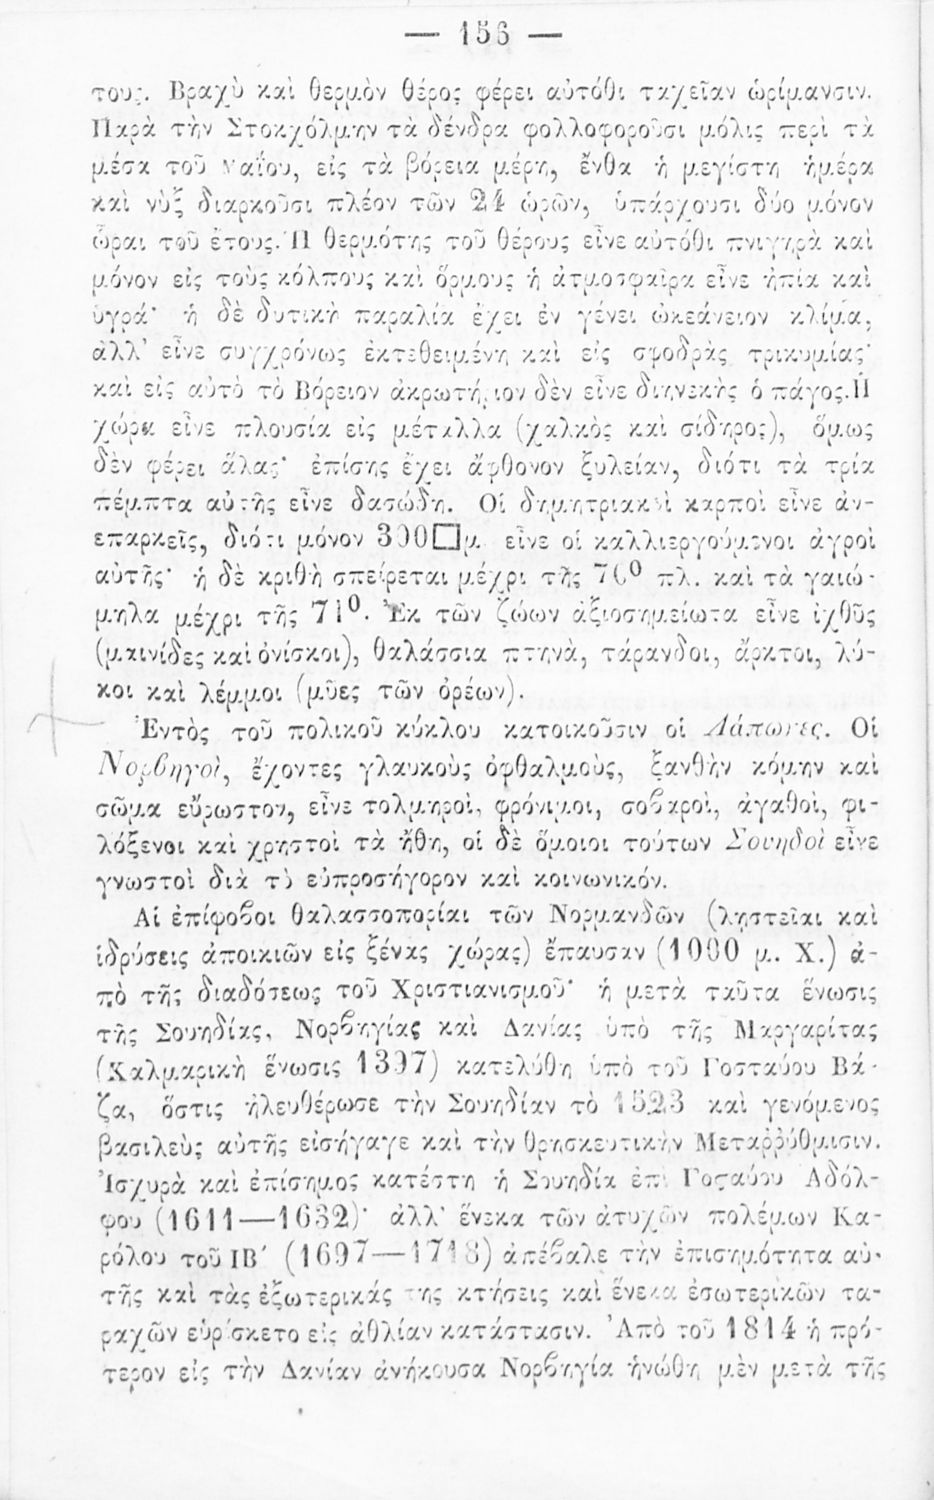 — 156 —
τους. Βραχὺ καὶ θερμὸν θέρος φέρει αὐτόθι ταχεῖαν ὡρίμανσιν.
Παρὰ τὴν Στοκχόλμην τὰ δένδρα φολλοφοροῦσι μόλις περὶ τὰ
μέσα τοῦ Μαΐου, εἰς τὰ βόρεια μέρη, ἔνθα ἡ μεγίστη ἡμέρα
καὶ νὺξ διαρκοῦσι πλέον τῶν 24 ὡρῶν, ὑπάρχουσι δύο μόνον
ὧραι τοῦ ἔτους. Ἡ θερμότης τοῦ θέρους εἶνε αὐτόθι πνιγηρὰ καὶ
μόνον εἰς τοὺς κόλπους καὶ ὅρμους ἡ ἀτμοσφαῖρα εἶνε ἠπία καὶ
ὑγρά· ἡ δὲ δυτικὴ παραλία ἔχει ἐν γένει ὠκεάνειον κλίμα,
ἀλλ' εἶνε συγχρόνως ἐκτεθειμένη καὶ εἰς σφοδρὰς τρικυμίας·
καὶ εἰς αὐτὸ τὸ Βόρειον ἀκρωτήριον δὲν εἶνε διηνεκὴς ὁ πάγος. Ἡ
χώρα εἶνε πλουσία εἰς μέταλλα (χαλκὸς καὶ σίδηρος), ὅμως
δὲν φέρει ἅλας· ἐπίσης ἔχει ἄφθονον ξυλείαν, διότι τὰ τρία
πέμπτα αὐτῆς εἶνε δασώδη. Οἱ δημητριακοὶ καρποὶ εἶνε ἀν-
επαρκεῖς, διότι μόνον 300□μ εἶνε οἱ καλλιεργούμενοι ἀγροὶ
αὐτῆς· ἡ δὲ κριθὴ σπείρεται μέχρι τῆς 70⁰ πλ. καὶ τὰ γαιώ-
μηλα μέχρι τῆς 71⁰. Ἐκ τῶν ζώων ἀξιοσημείωτα εἶνε ἰχθῦς
(μαινίδες καὶ ὀνίσκοι), θαλάσσια πτηνὰ, τάρανδοι, ἄρκτοι, λύ-
κοι καὶ λέμμοι (μῦες τῶν ὀρέων).
Ἐντὸς τοῦ πολικοῦ κύκλου κατοικοῦσιν οἱ Λάπωνες. Οἱ
Νορβηγοὶ, ἔχοντες γλαυκοὺς ὀφθαλμοὺς, ξανθὴν κόμην καὶ
σῶμα εὔρωστον, εἶνε τολμηροὶ, φρόνιμοι, σοβαροὶ, ἀγαθοὶ, φι-
λόξενοι καὶ χρηστοὶ τὰ ἤθη, οἱ δὲ ὅμοιοι τούτων Σουηδοὶ εἶνε
γνωστοὶ διὰ τὸ εὐπροσήγορον καὶ κοινωνικόν.
Αἱ ἐπίφοβοι θαλασσοπορίαι τῶν Νορμανδῶν (ληστεῖαι καὶ
ἱδρύσεις ἀποικιῶν εἰς ξένας χώρας) ἔπαυσαν (1000 μ. Χ.) ἀ-
πὸ τῆς διαδόσεως τοῦ Χριστιανισμοῦ· ἡ μετὰ ταῦτα ἕνωσις
τῆς Σουηδίας, Νορβηγίας καὶ Δανίας ὑπὸ τῆς Μαργαρίτας
(Καλμαρικὴ ἕνωσις 1397) κατελύθη ὑπὸ τοῦ Γοσταύου Βά-
ζα, ὅστις ἠλευθέρωσε τὴν Σουηδίαν τὸ 1523 καὶ γενόμενος
βασιλεὺς αὐτῆς εἰσήγαγε καὶ τὴν θρησκευτικὴν Μεταῤῥύθμισιν.
Ἰσχυρὰ καὶ ἐπίσημος κατέστη ἡ Σουηδία ἐπὶ Γοσταύου Αδόλ-
φου (1611—1632)· ἀλλ' ἕνεκα τῶν ἀτυχῶν πολέμων Κα-
ρόλου τοῦ ΙΒ′ (1697—1718) ἀπέβαλε τὴν ἐπισημότητα αὐ-
τῆς καὶ τὰς ἐξωτερικάς της κτήσεις καὶ ἕνεκα ἐσωτερικῶν τα-
ραχῶν εὑρίσκετο εἰς ἀθλίαν κατάστασιν. Ἀπὸ τοῦ 1814 ἡ πρό-
τερον εἰς τὴν Δανίαν ἀνήκουσα Νορβηγία ἡνώθη μὲν μετὰ τῆς